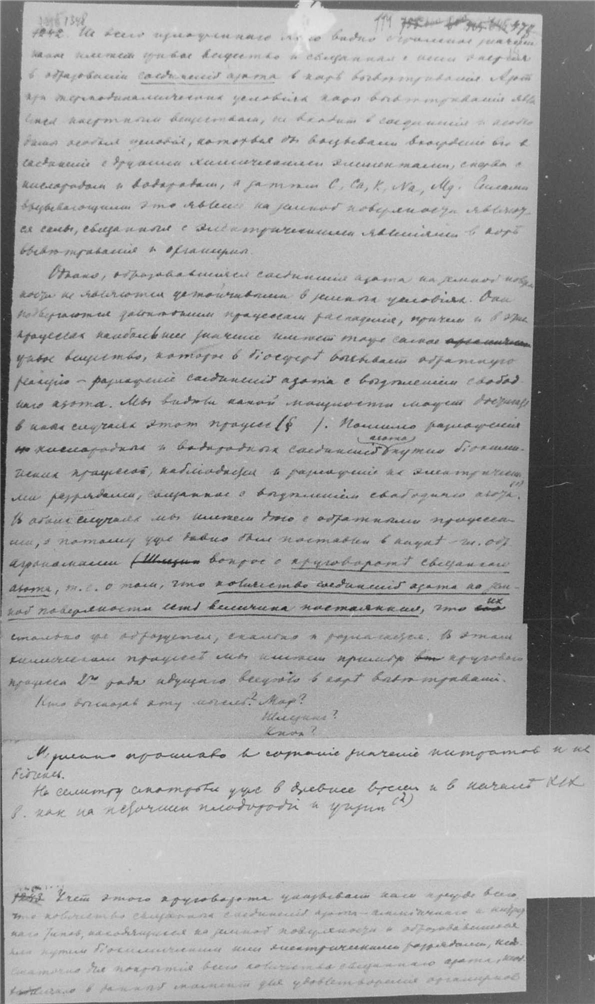 1042. Из всего изложенного ясно видно огромное значение,
какое имеет живое вещество и связанная с ним энергия
в образовании соединений азота в коре выветривания. Азот
при термодинамических условиях коры выветривания явля-
ется инертным веществом, не входит в соединения и необхо-
димы особые условия, которые бы вызывали вхождение его в
соединение с другими химическими элементами, сперва с
кислородом и водородом, а затем C, Ca, K, Na, Mg. Силами
вызывающими это явление на земной поверхности являют-
ся силы, связанные с электрическими явлениями в коре
выветривания и организмы.
Однако, образовавшиеся соединения азота на земной поверх-
ности не являются устойчивыми в земных условиях. Они
подвергаются дальнейшим процессам распадения, причем и в этих
процессах наибольшее значение имеет тоже самое
живое вещество, которое в біосферѣ вызывает обратную
реакцію – разложение соединений азота с выделением свобод-
ного азота. Мы видели какой мощности может достигать
в иных случаях этот процесс (§ ). Помимо разложения
кислородных и водородных соединений азота путем биохими-
ческих процессов, наблюдается и разложение их электрически-
ми разрядами, связанное с выделением свободного азота. (1)
В обоих случаях мы имеем дело с обратными процесса-
ми, а потому уже давно был поставлен в науке
агрономами вопрос о круговороте связанного
азота, т.е. о том, что количество соединений азота на зем-
ной поверхности есть величина постоянная, что их
столько же образуется, сколько и разлагается. В этом
химическом процессе мы имеем пример кругового
процесса 2го рода идущего в коре выветривания.
Кто высказал эту мысль? Мар?
Шлезинг?
Кноп?
Медленно проникало в сознание значение нитратов и не
На селитру смотрели уже в древнее время и в начале XIX
в. как на источник плодородія и (2)
1043 Учет этого круговорота указывает нам прежде всего
что количество связанных соединений азота – аммиачного и нитрат-
ного типов, находящихся на земной поверхности и образовавшихся
или путем биохимическим или электрическими разрядами, недо-
статочно для покрытия всего количества связанного азота,
в данный момент для удовлетворения организмов